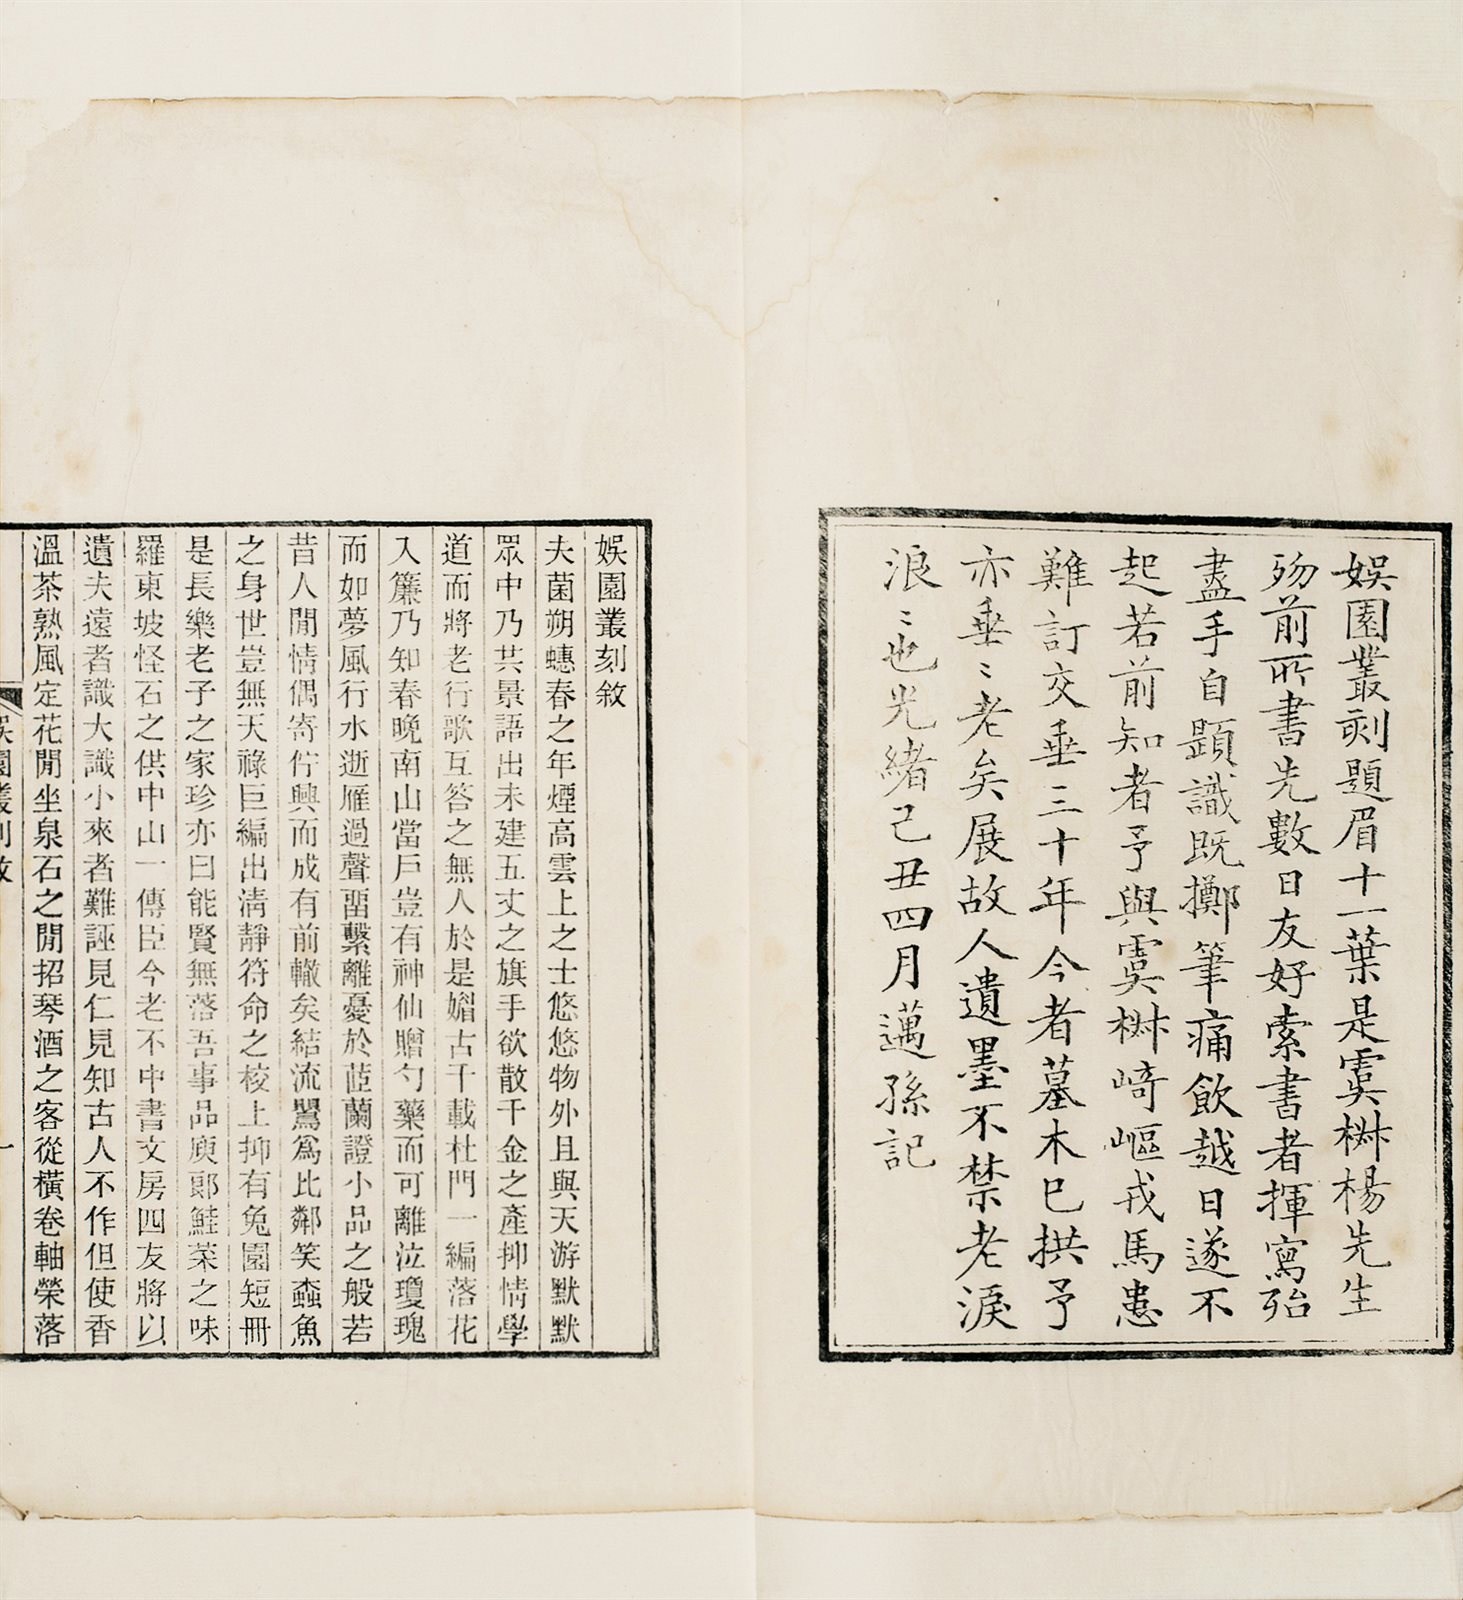 娛園叢刻題眉十一葉是䨇楙楊先生
殁前所書先數日友好索書者揮寫殆
盡手自題識既擲筆痛飲越日遂不
起若前知者予與䨇楙崎嶇戎馬患
難訂交垂三十年今者墓木已拱予
亦垂〻老矣展故人遺墨不禁老淚
浪〻也光緒己丑四月邁孫記
娛園叢刻敘
夫菌朔蟪春之年煙高雲上之士悠悠物外且與天游默默
眾中乃共景語出未建五丈之旗手欲散千金之產抑情學
道而將老行歌互答之無人於是嫏古千載杜門一編落花
入簾乃知春晚南山當戶豈有神仙贈勺藥而可離泣瓊瑰
而如夢風行水逝雁過聲畱繫離憂於茝蘭證小品之般若
昔人閒情偶寄佇興而成有前轍矣結流鶦為比鄰笑螙魚
之身世豈無天祿巨編出淸靜符命之棱上抑有兔園短冊
是長樂老子之家珍亦曰能賢無落吾事品庾郞鮭菜之味
羅東坡怪石之供中山一傳臣今老不中書文房四友將以
遺夫遠者識大識小來者難誣見仁見知古人不作但使香
溫茶熟風定花閒坐泉石之閒招琴酒之客從橫卷軸榮落
娛園叢刻敘
一